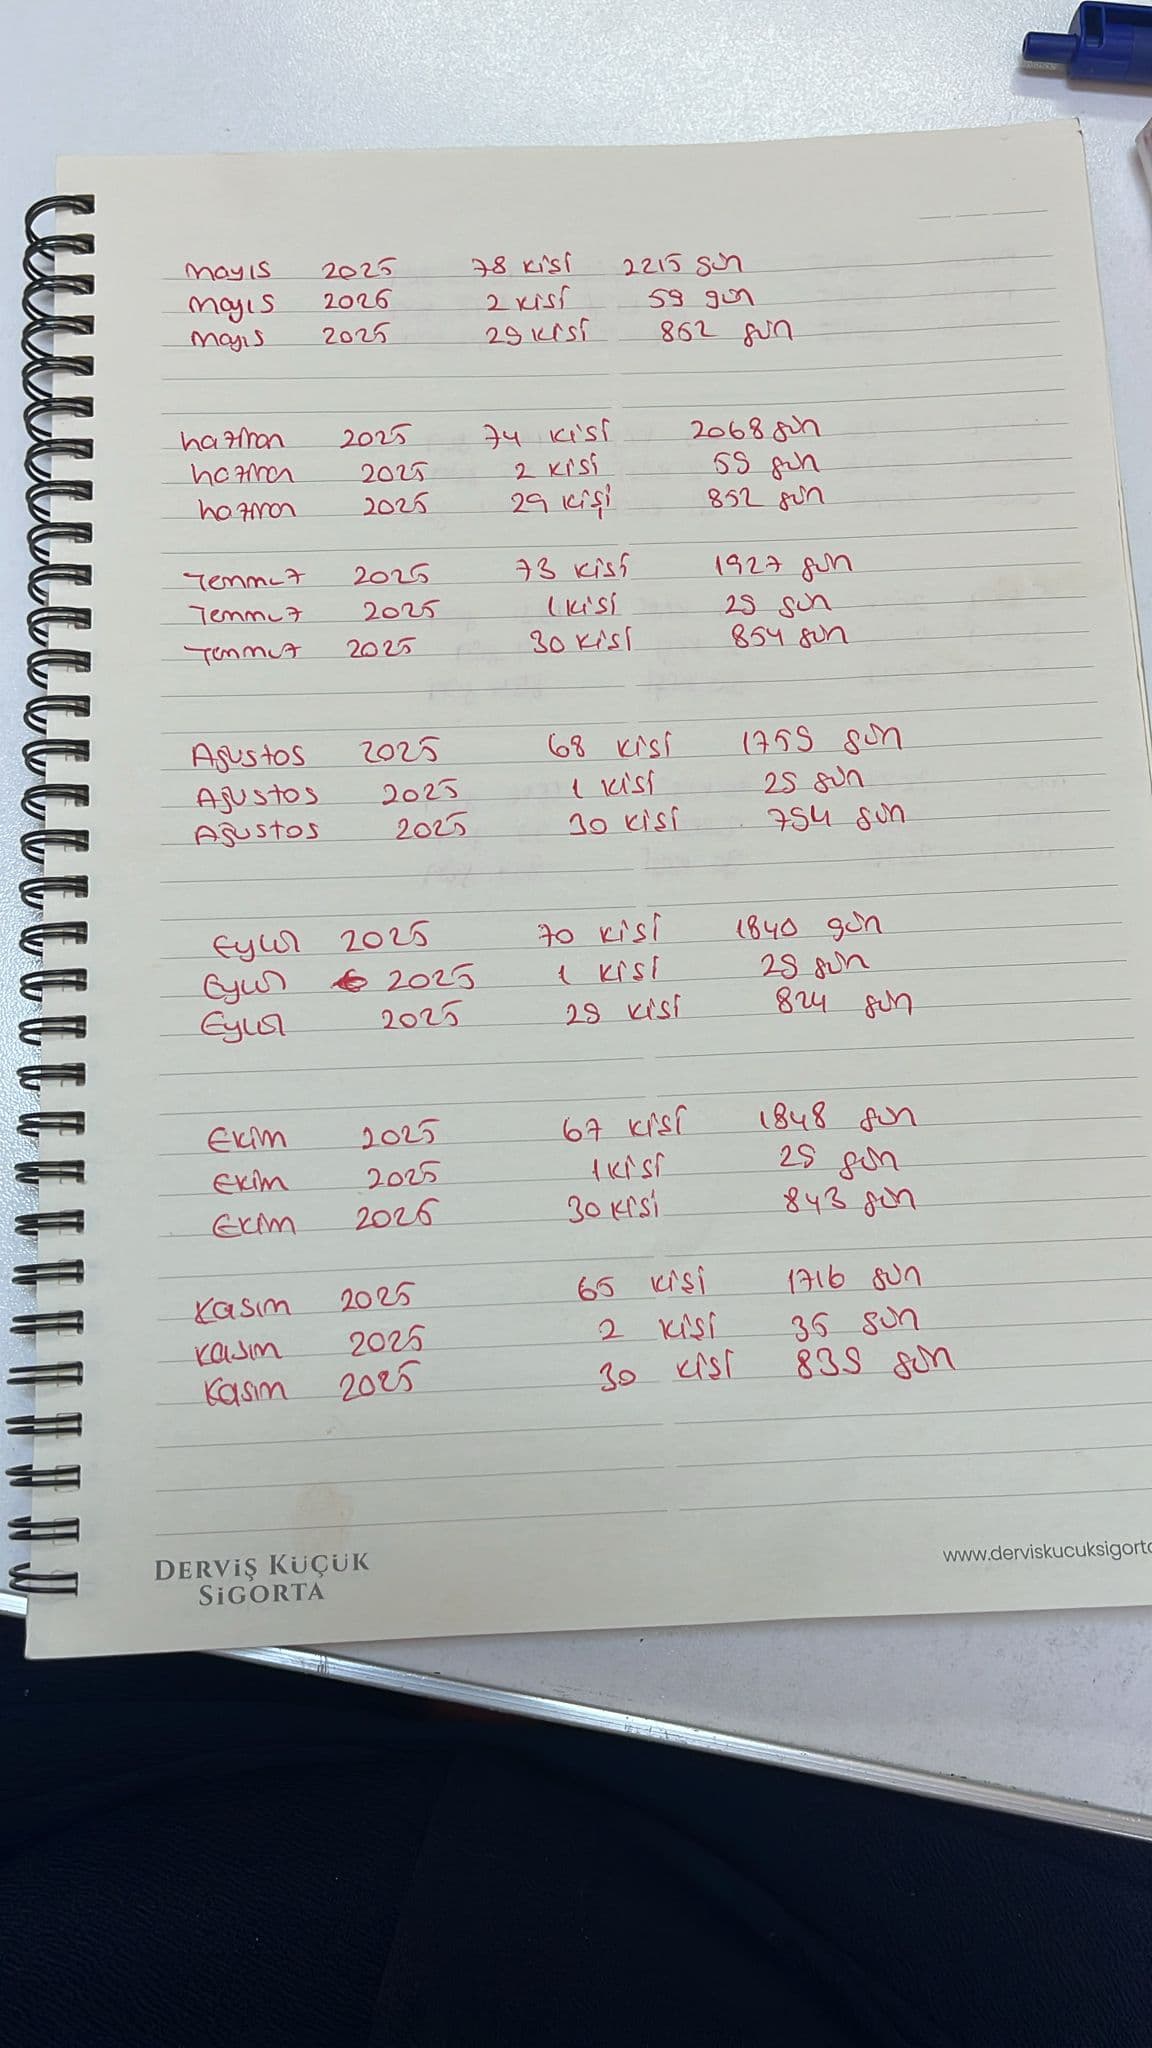 mayıs 2025 78 kişi 2215 gün
mayıs 2026 2 kişi 59 gün
mayıs 2025 29 kişi 862 gün
haziran 2025 74 kişi 2068 gün
haziran 2025 2 kişi 59 gün
haziran 2025 29 kişi 852 gün
Temmuz 2025 73 kişi 1927 gün
Temmuz 2025 1 kişi 29 gün
Temmuz 2025 30 kişi 854 gün
Ağustos 2025 68 kişi 1759 gün
Ağustos 2025 1 kişi 29 gün
Ağustos 2025 30 kişi 794 gün
Eylül 2025 70 kişi 1840 gün
Eylül 2025 1 kişi 29 gün
Eylül 2025 29 kişi 824 gün
Ekim 2025 67 kişi 1848 gün
Ekim 2025 1 kişi 29 gün
Ekim 2026 30 kişi 843 gün
Kasım 2025 65 kişi 1716 gün
Kasım 2025 2 kişi 36 gün
Kasım 2025 30 kişi 839 gün
DERVİŞ KÜÇÜK
SİGORTA
www.derviskucuksigorta